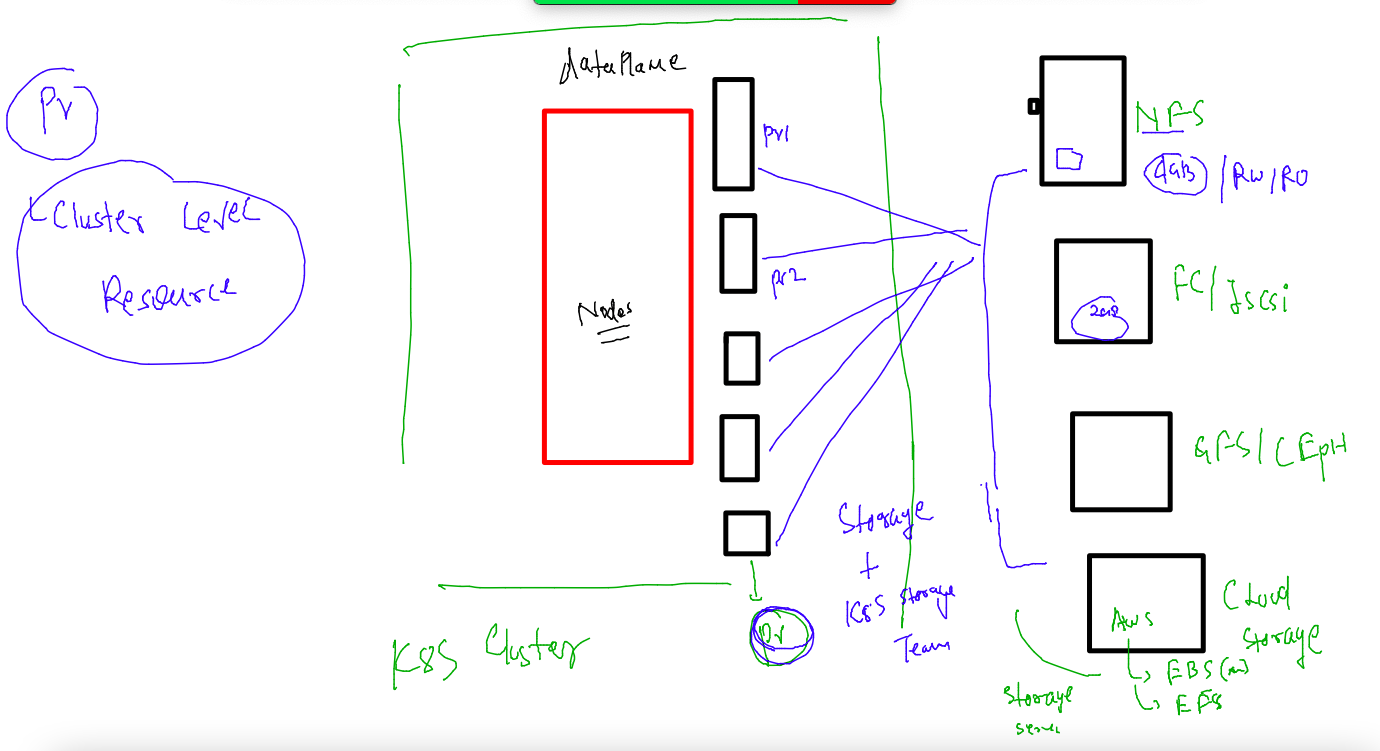 Pv
Cluster Level
Resource
dataPlane
Nodes
pv1
pv2
pv
K8S Cluster
Storage
+
K8S Storage
Team
NFS
4GB / RW / RO
FC / Iscsi
2GB
GFS / CEpH
Cloud
Storage
AWS
EBS
EFS
Storage
Server